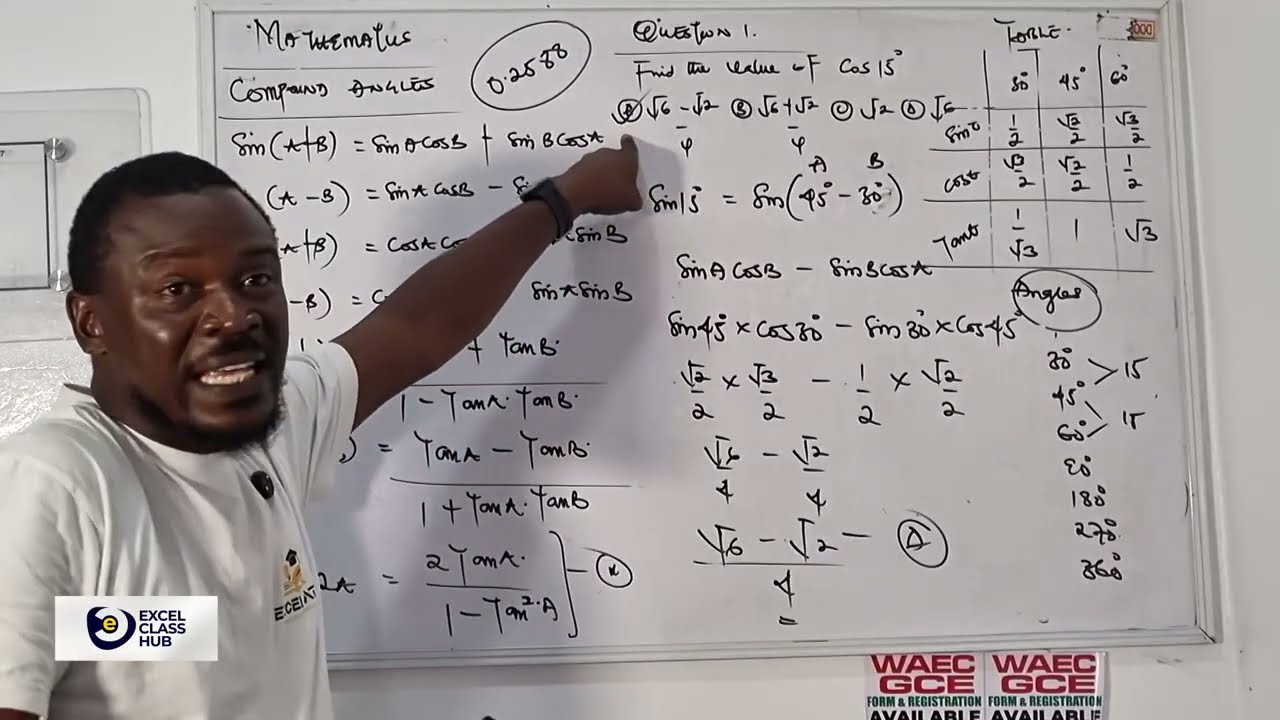 MATHEMATICS
COMPOUND ANGLES
0.2588
Sin(A+B) = SinACosB + SinBCosA
(A-B) = SinACosB -
A+B) = SinB
-B) = SinASinB
+ TanB
1 - TanA.TanB
) = TanA - TanB
1 + TanA.TanB
2A = 2TanA
1 - Tan².A
QUESTION 1.
Find the value of Cos15°
Ⓐ √6 - √2 / 4 Ⓑ √6 + √2 / 4 Ⓒ √2 Ⓓ √6
A B
Sin15° = Sin(45° - 30°)
SinACosB - SinBCosA
Sin45° × Cos30° - Sin30° × Cos45°
√2/2 × √3/2 - 1/2 × √2/2
√6/4 - √2/4
√6 - √2 - Ⓐ
4
=
TABLE
30° 45° 60°
Sinθ 1/2 √2/2 √3/2
Cosθ √3/2 √2/2 1/2
Tanθ 1/√3 1 √3
Angles
30° > 15
45°
60° > 15
90°
180°
270°
360°
ECEINT
EXCEL
CLASS
HUB
WAEC
GCE
FORM & REGISTRATION
AVAILABLE
WAEC
GCE
FORM & REGISTRATION
AVAILABLE